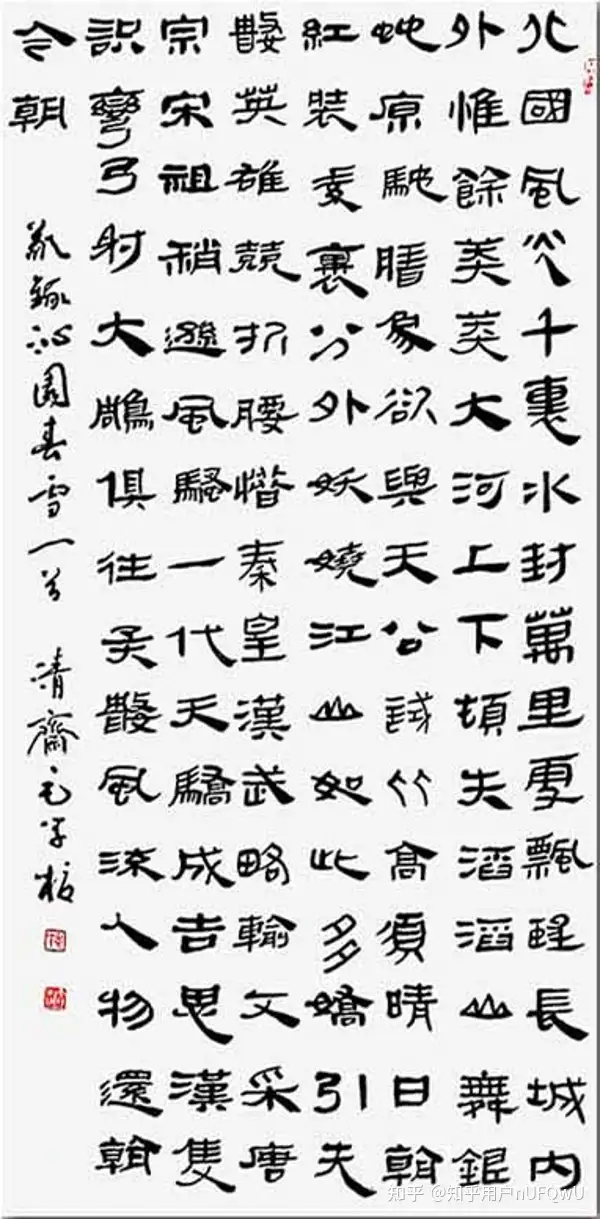 北國風光千裏冰封萬里雪飄望長城內
外惟餘莽莽大河上下頓失滔滔山舞銀
蛇原馳臘象欲與天公試比高須晴日看
紅裝素裹分外妖嬈江山如此多嬌引无
數英雄競折腰惜秦皇漢武略輸文采唐
宗宋祖稍遜風騷一代天驕成吉思漢隻
識彎弓射大雕俱往矣數風流人物還看
今朝
敬錄沁園春雪一首 清齋毛學
知乎 @知乎用户nUFQWU